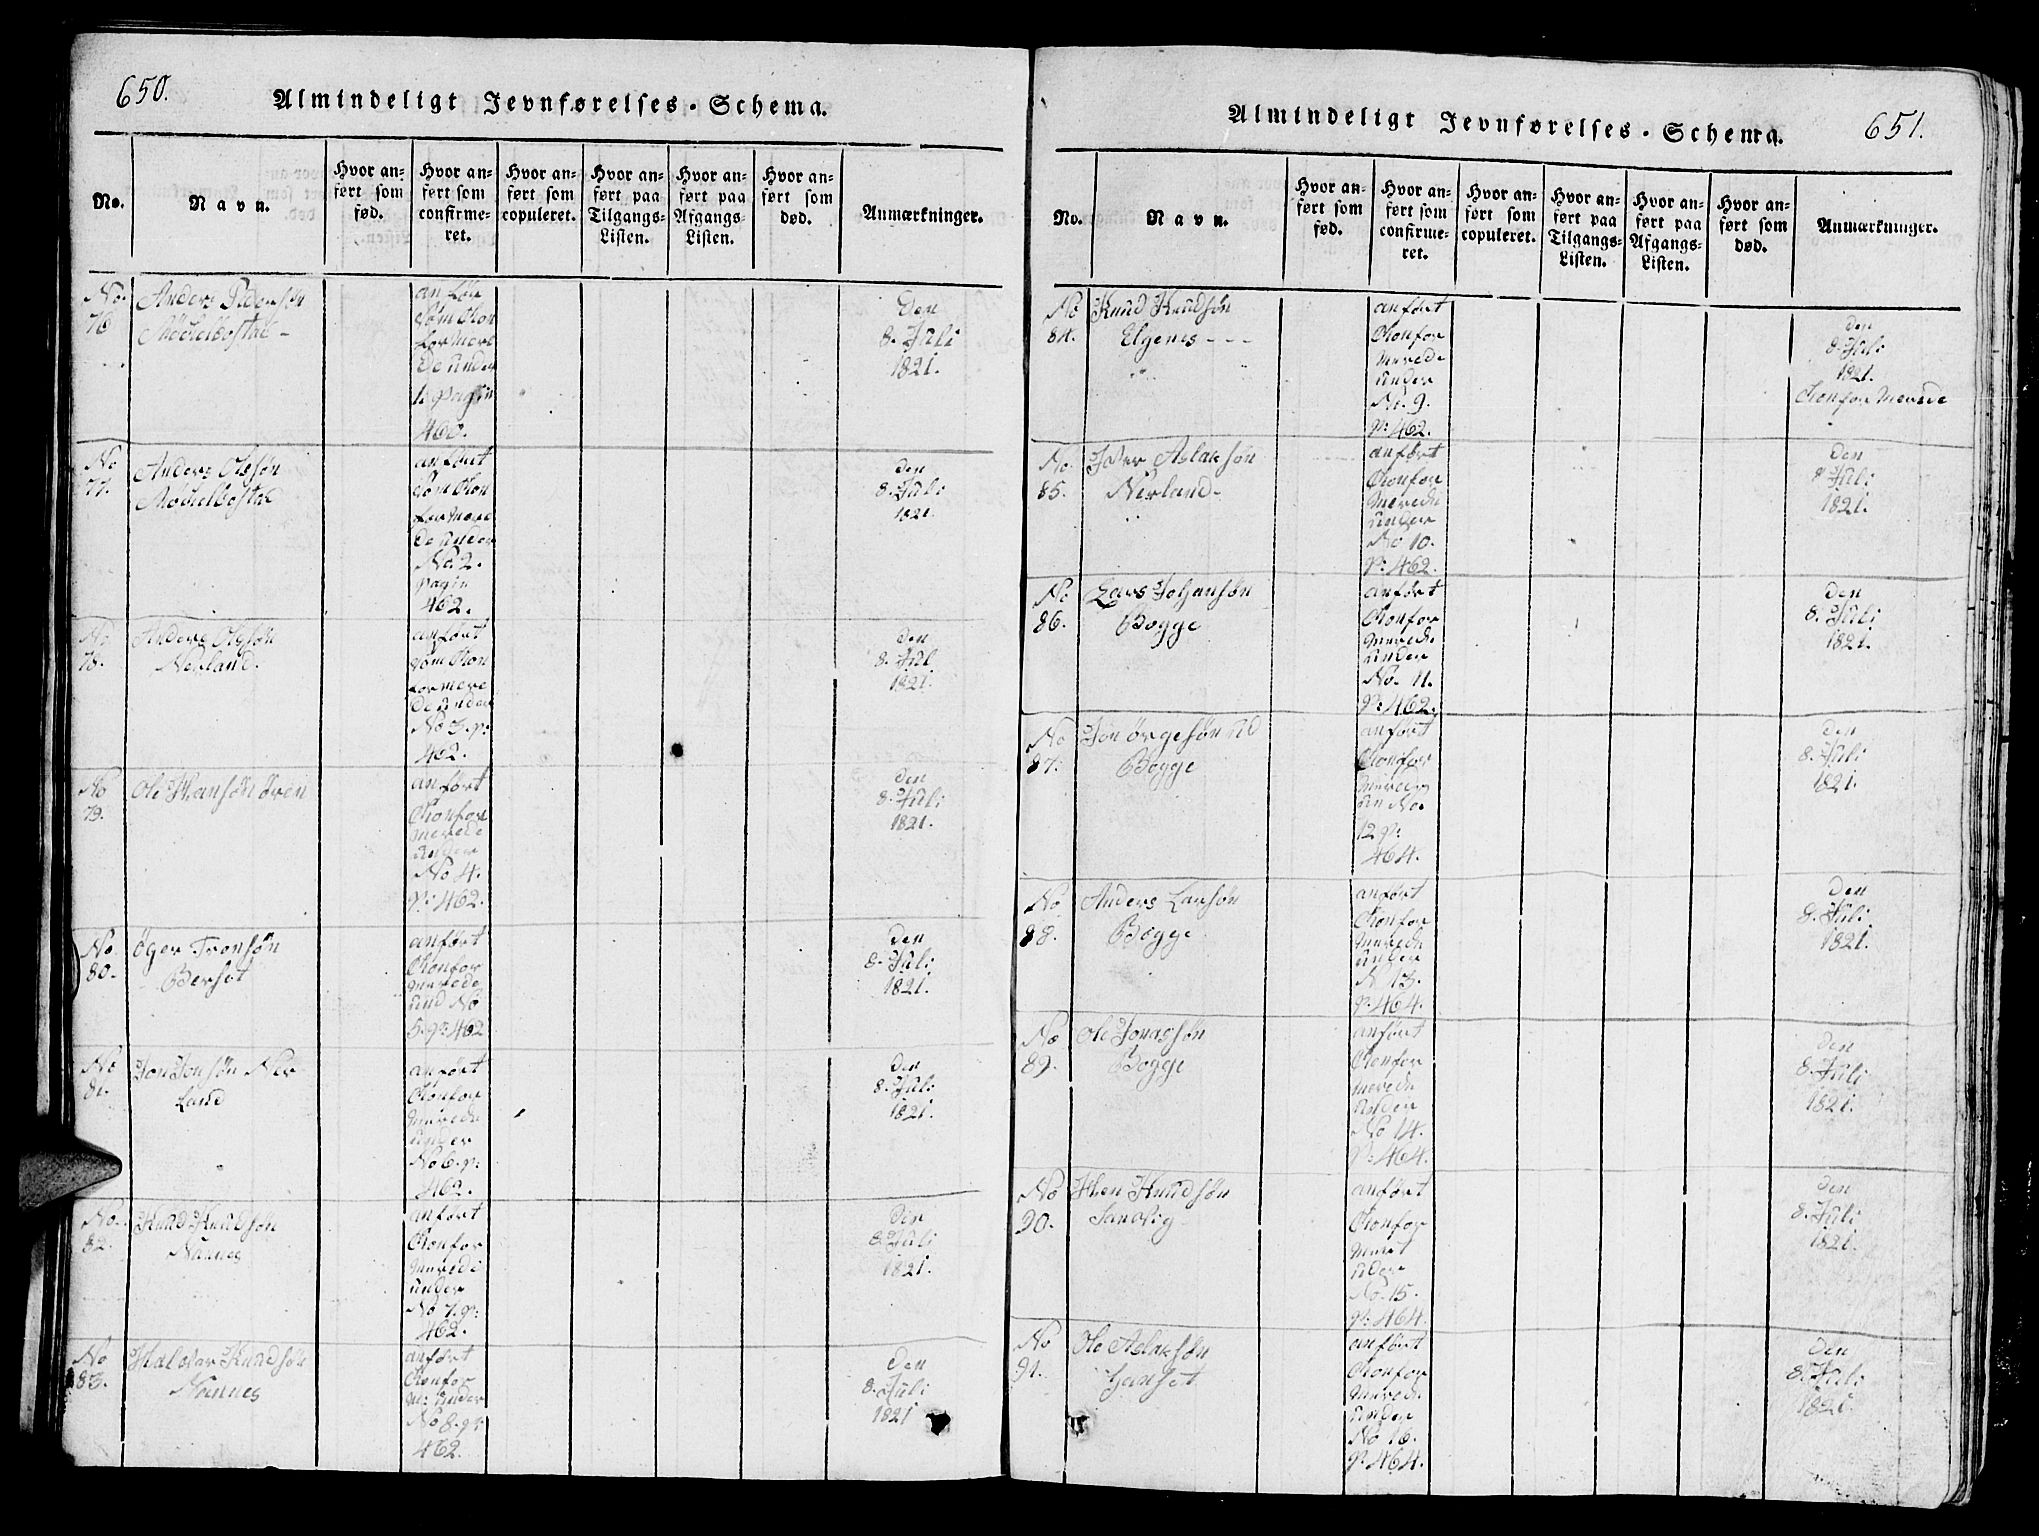 650.
Almindeligt Jevnførelses-Schema.
No.
Navn.
Hvor anført som fød.
Hvor anført som confirmeret.
Hvor anført som copuleret.
Hvor anført paa Tilgangs-Listen.
Hvor anført paa Afgangs-Listen.
Hvor anført som død.
Anmærkninger.
No. 76
Anders
anfør
som Kon
formere
de under
1. pagin
460.
Den
8. Juli
1821.
No 77.
Anders Olssøn
anført
som Kon
formere
de under
No. 2.
pagin
462.
den
8. Juli
1821.
No 78.
Anders Olssøn
Nerland.
anført
som Kon
formere
de under
No 3. p:
462.
den
8. Jul
1821.
No 79.
Ole Hansøn øren
anført
Konfor
merede
under
No 4.
p: 462.
den
8. Juli
1821.
No 80.
øger Tronsøn
Berset
anført
Konfor
merede
und No
5. p: 462
den
8. Juli
1821.
No 81.
Jon Jonsøn Ner
Land
anført
Konfor
merede
under
No 6. p:
462.
den
8. Juli
1821.
No. 82.
Knud Knudsøn
Nannes
anført
Konfor
merede
under
No 7. p:
462.
den
8. Juli
1821.
No 83.
Halvar Knudsøn
Nannes
anført
Konfor
m: under
No 8. p:
462.
den
8. Juli
1821
Almindeligt Jevnførelses-Schema.
651.
No.
Navn.
Hvor anført som fød.
Hvor anført som confirmeret.
Hvor anført som copuleret.
Hvor anført paa Tilgangs-Listen.
Hvor anført paa Afgangs-Listen.
Hvor anført som død.
Anmærkninger.
No 84.
Knud Knudsøn
Elgenes - - -
anført
Konfor
merede
under
No. 9.
p: 462.
den
8 Juli
1821.
Konformerede
No. 85.
Iver Aslaksøn
Nerland-
anført
Konfor
merede
under
No 10.
p: 462.
den
8 Juli
1821.
No 86.
Lars Johansøn
Bogge
anført
Konfor
merede
under
No. 11.
p: 462.
den
8. Juli
1821.
No 87.
Jon ørgesøn
Bogge
anført
Konfor
merede
un No
12 p:
464.
den
8. Juli
1821.
No 88.
Anders Larsøn
Bogge
anført
Konfor
merede
under
N 13.
p: 464.
den
8. Juli
1821.
No 89.
Ole Jonassøn
Bogge
anført
Konfor
merede
No 14.
p: 464.
den
8. Juli
1821.
No 90.
Knudsøn
Sandvig
anført
Konfor
meret
uder
No. 15.
p: 464.
den
8. Juli
1821.
No 91.
Ole Aslaksøn
anført
Konfor
merede
under
No 16.
p: 464.
den
8. Juli
1821.